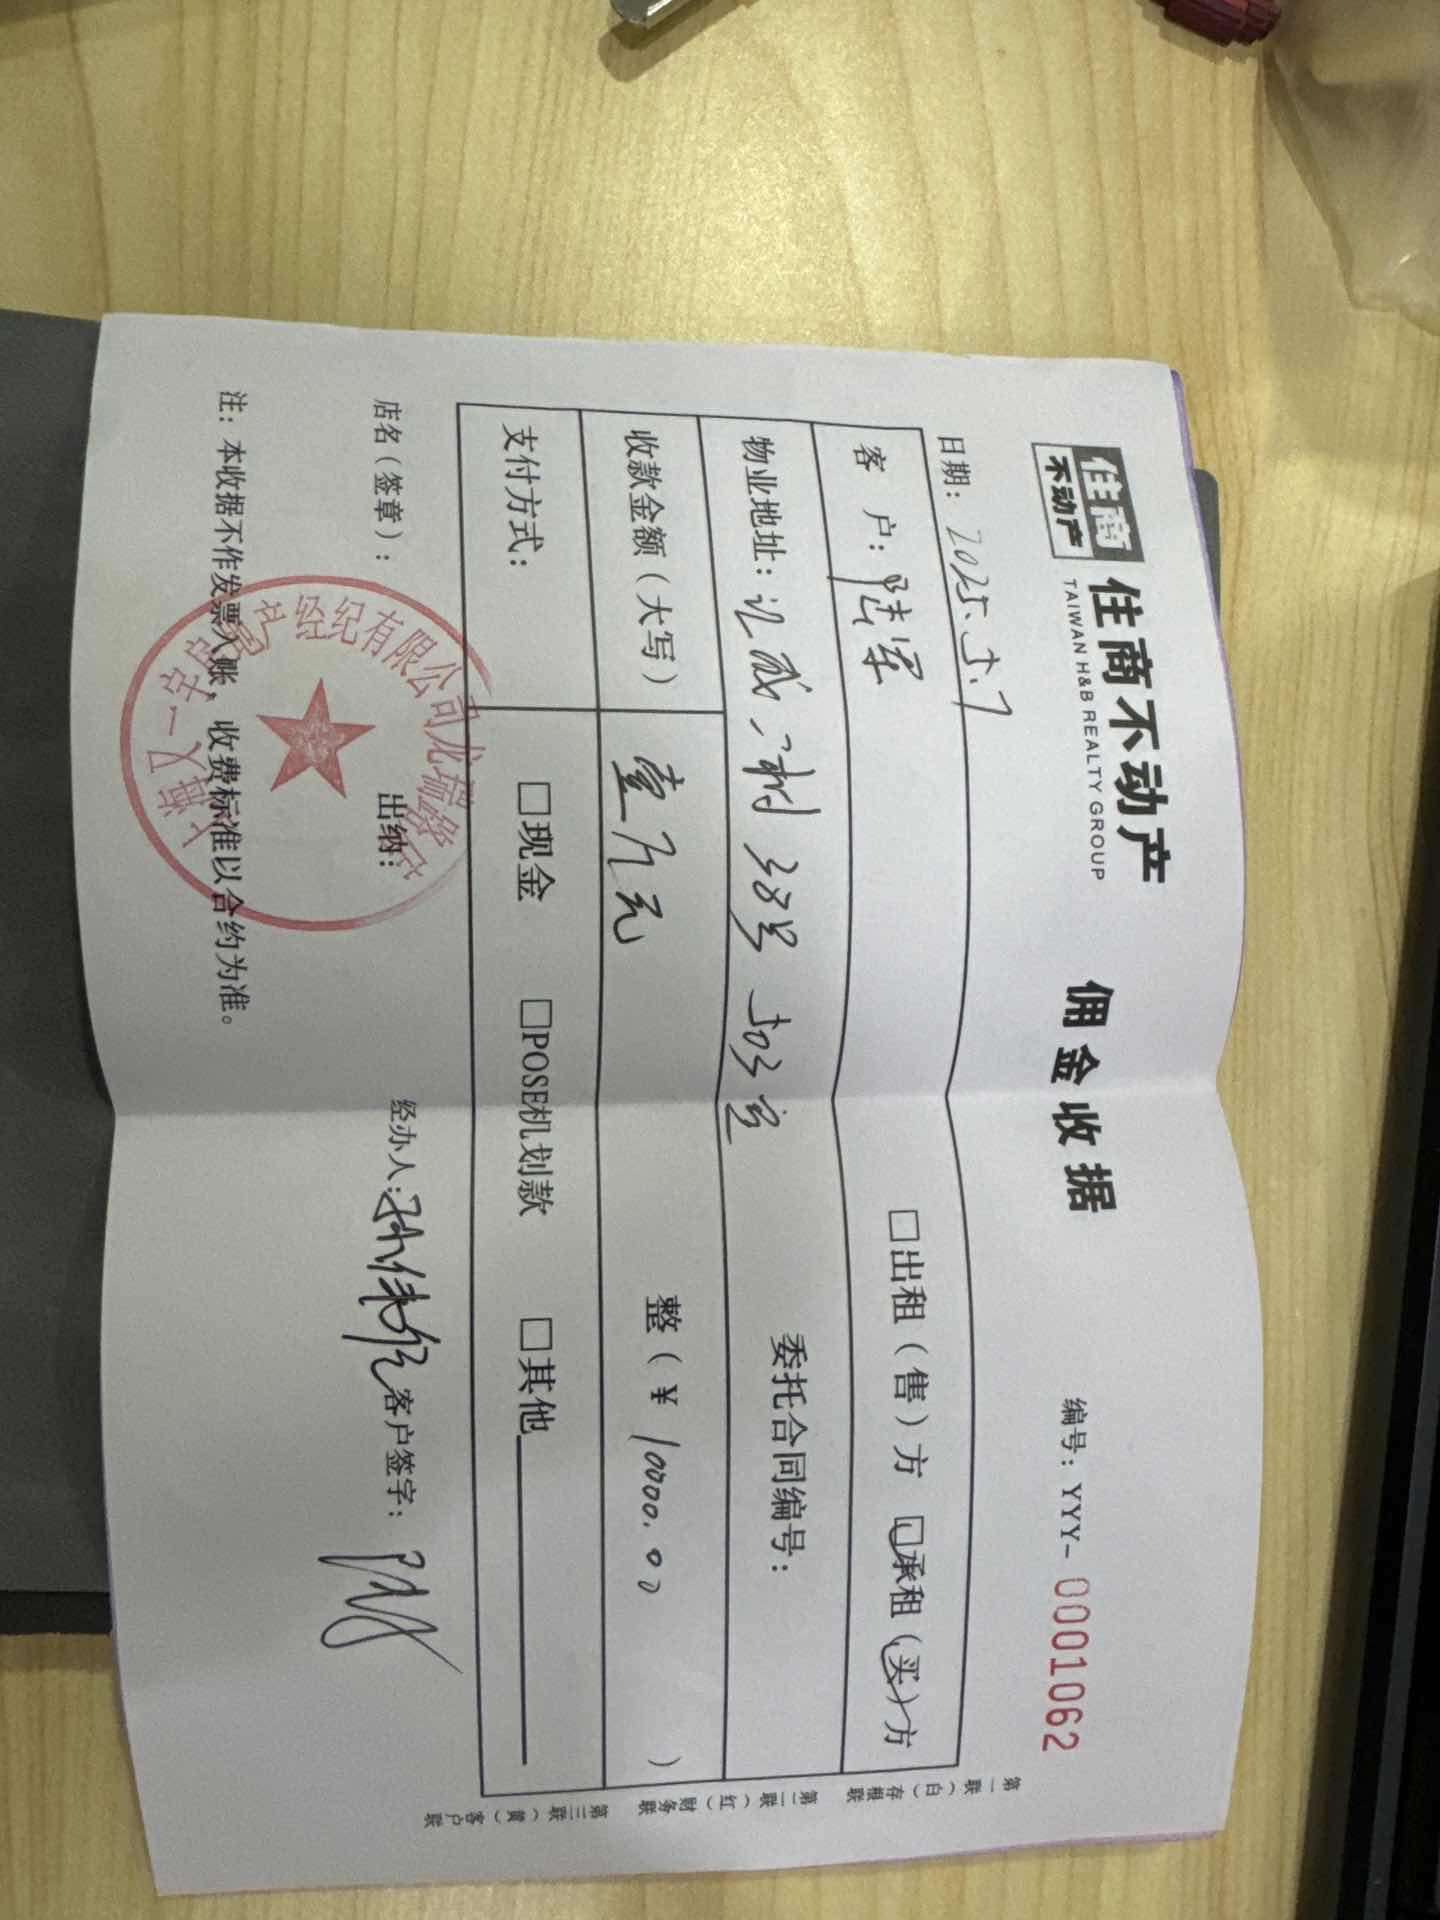 住商
不动产
住商不动产
TAIWAN H&B REALTY GROUP
佣金收据
编号：YYY-0001062
日期：2025.5.7
客 户：陆军
□出租（售）方 □承租（买）方
物业地址： 村 38号 503室
委托合同编号：
收款金额（大写） 壹万元 整（¥ 10000.00 ）
支付方式： □现金 □POSE机划款 □其他
店名（签章）： 出纳： 经办人： 客户签字：
产经纪有限公司龙瑞路
注：本收据不作发票入账，收费标准以合约为准。
第一联（白）存根联 第二联（红）财务联 第三联（黄）客户联